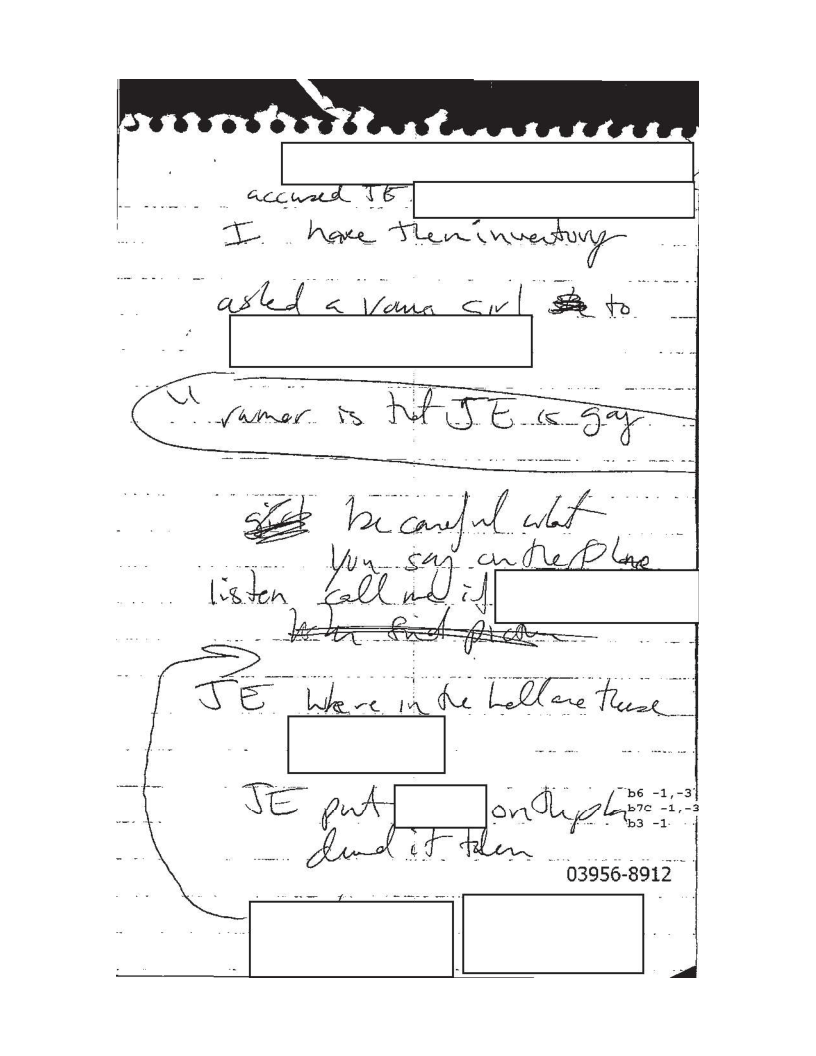 accused JE
I have them inventory
asked a young girl to
" rumor is that JE is gay
be careful what
you say on the phone
listen call me if
JE where in the hell are these
JE put on the
b6 -1,-3
b7C -1,-3
b3 -1
it
03956-8912